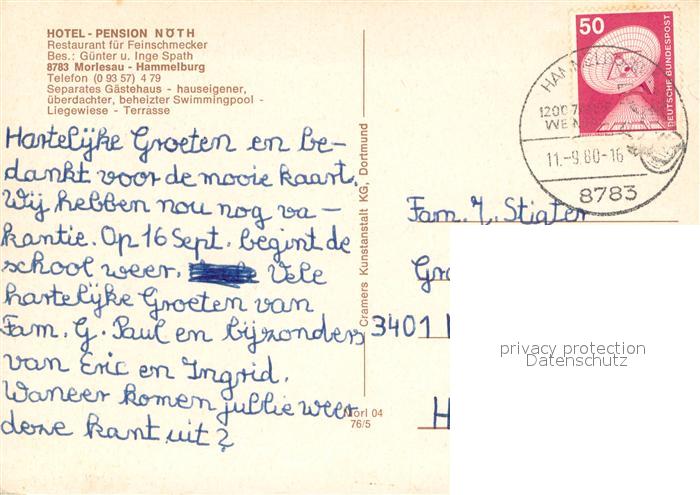 HOTEL - PENSION NÖTH
Restaurant für Feinschmecker
Bes.: Günter u. Inge Spath
8783 Morlesau - Hammelburg
Telefon (0 93 57) 4 79
Separates Gästehaus - hauseigener,
überdachter, beheizter Swimmingpool -
Liegewiese - Terrasse
Hartelijke Groeten en be-
dankt voor de mooie kaart.
Wij hebben nou nog va-
kantie. Op 16 Sept. begint de
school weer. Vele
hartelijke Groeten van
Fam. G. Paul en bijzonders
van Eric en Ingrid.
Waneer komen jullie weer
deze kant uit?
Cramers Kunstanstalt KG, Dortmund
Morl 04
76/5
50
DEUTSCHE BUNDESPOST
11.-9.80-16
8783
Fam. J. Stigter
3401
H
privacy protection
Datenschutz